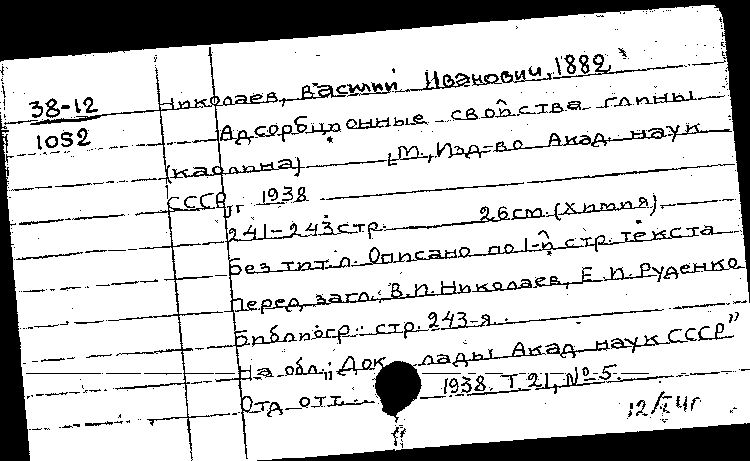 38-12
1052
Николаев, Василий Иванович, 1882
Адсорбционные свойства глины
(каолина) [М., Изд-во Акад. наук
СССР, 1938
241-243 стр. 26 см. (Химия)
Без тит. л. Описано по 1-й стр. текста
Перед загл.: В.И. Николаев, Е.И. Руденко
Библиогр.: стр. 243-я.
На обл.: "Доклады Акад. наук СССР"
1938. Т 21, № 5.
Отд. отт.